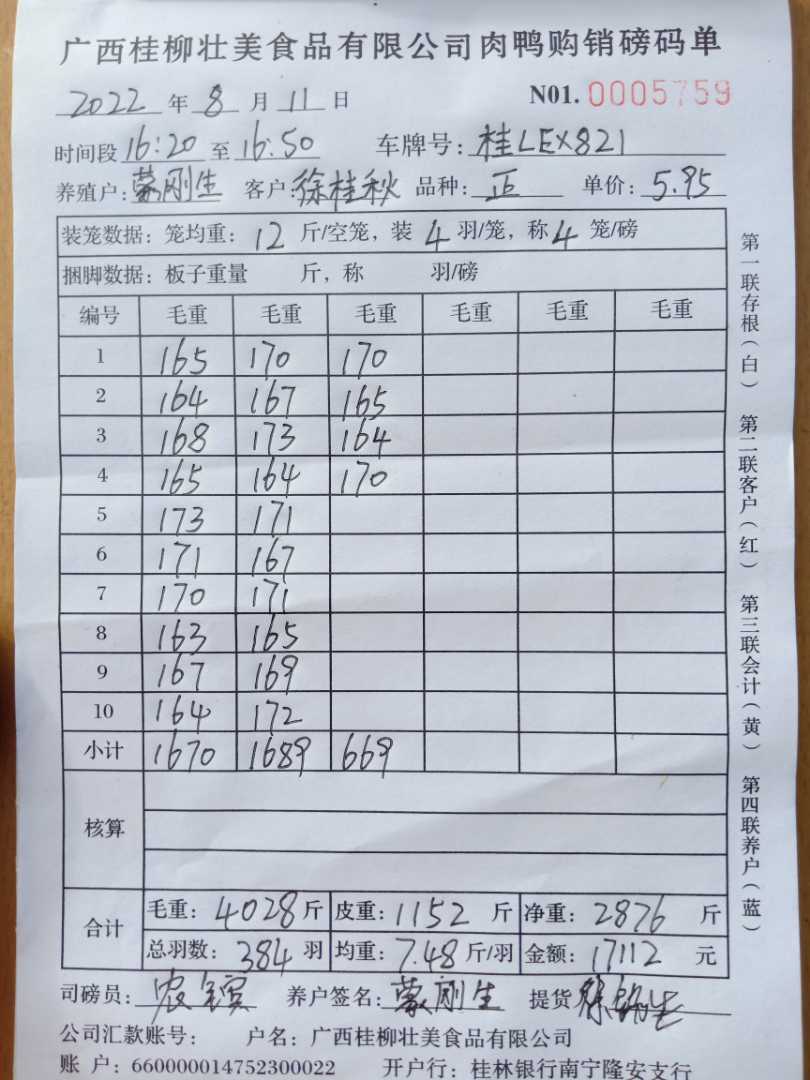 广西桂柳壮美食品有限公司肉鸭购销磅码单
2022 年 8 月 11 日 N01. 0005759
时间段 16:20 至 16:50 车牌号: 桂LEX821
养殖户: 蒙刚生 客户: 徐桂秋 品种: 正 单价: 5.95
装笼数据: 笼均重: 12 斤/空笼, 装 4 羽/笼, 称 4 笼/磅
捆脚数据: 板子重量 斤, 称 羽/磅
编号 毛重 毛重 毛重 毛重 毛重 毛重
1 165 170 170
2 164 167 165
3 168 173 164
4 165 164 170
5 173 171
6 171 167
7 170 171
8 163 165
9 167 169
10 164 172
小计 1670 1689 669
核算
合计 毛重: 4028 斤 皮重: 1152 斤 净重: 2876 斤
总羽数: 384 羽 均重: 7.48 斤/羽 金额: 17112 元
司磅员: 农 养户签名: 蒙刚生 提货 徐
公司汇款账号: 户名: 广西桂柳壮美食品有限公司
账 户: 660000014752300022 开户行: 桂林银行南宁隆安支行
第一联存根(白) 第二联客户(红) 第三联会计(黄) 第四联养户(蓝)